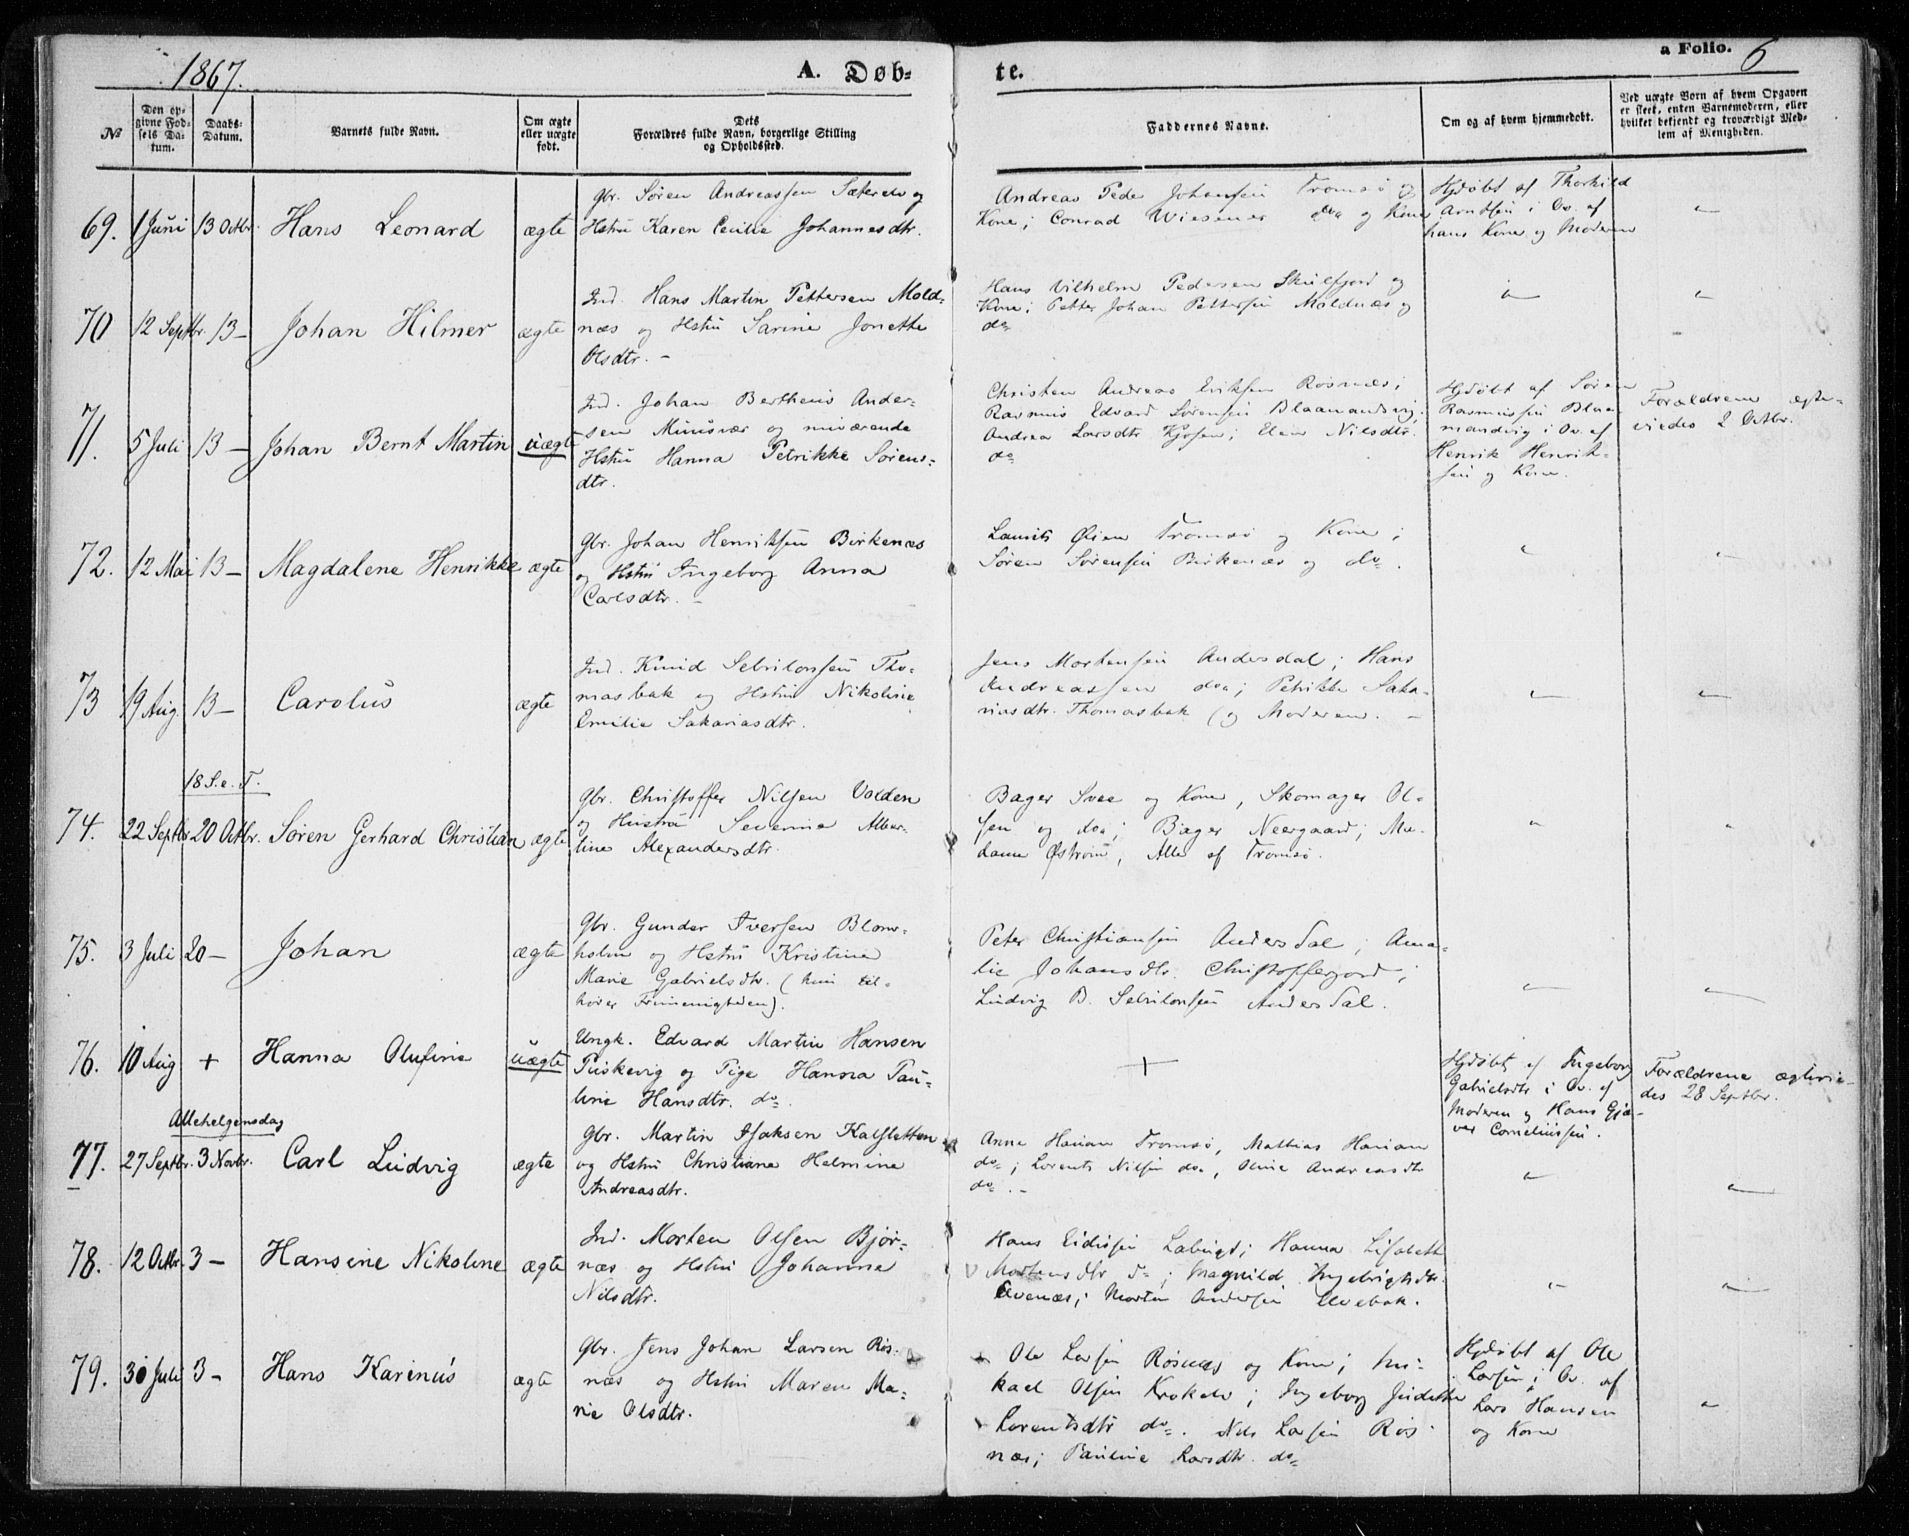 1867.
A. Døb-
te.
a Folio. 6
№
Den op-
givne Fød-
sels Da-
tum.
Daabs-
Datum.
Barnets fulde Navn.
Om ægte
eller uægte
født.
Dets
Forældres fulde Navn, borgerlige Stilling
og Opholdssted.
Faddernes Navne.
Om og af hvem hjemmedøbt.
Ved uægte Børn af hvem Opgaven
er skeet, enten Barnemoderen, eller
hvilket bekjendt og troværdigt Med-
lem af Menigheden.
69. 1 Juni 13 Octbr. Hans Leonard ægte
Gbr. Søren Andreassen Sæterelv og
Hstru Karen Cecilie Johannesdtr.
Andreas Pede Johansen Tromsø og
Kone; Conrad Wiesener do og Kone
Hjdøbt af Thorkild
Arntsen i Ov. af
hans Kone og Moderen
"
70 12 Septbr. 13 — Johan Hilmer ægte
Ind. Hans Martin Pettersen Mold-
næs og Hstru Sarine Jonette
Olsdtr. —
Hans Vilhelm Pedersen Skulsfjord og
Kone; Petter Johan Pettersen Moldnæs og
do
"
"
71. 5 Juli 13 — Johan Bernt Martin uægte
Ind. Johan Bertheus Ander-
sen Muusvær og nuværende
Hstru Hanna Petrikke Sørens-
dtr.
Christen Andreas Eriksen Røsnæs;
Rasmus Edvard Sørensen Blaamandsvig;
Andrea Larsdtr Kjosen; Elen Nilsdtr.
do
Hjdøbt af Søren
Rasmussen Blaa-
mandvig i Ov. af
Henrik Henrik-
sen og Kone.
Forældrene ægte-
viedes 2 Octbr.
72. 12 Mai 13 — Magdalene Henrikke ægte
Gbr. Johan Henriksen Birkenæs
og Hstru Ingeborg Anna
Carlsdtr. —
Laurits Øien Tromsø og Kone;
Søren Sørensen Birkenæs og do.
"
"
73 19 Aug. 13 — Carolus ægte
Ind. Knud Sebrilonsen Tho-
masbak og Hstru Nikoline
Emilie Sakariasdtr.
Jens Mortensen Andersdal; Hans
Andreassen do; Petrikke Saka-
riasdtr. Thomasbak (og Moderen. —
"
"
18 S.e.T.
74. 22 Septbr. 20 Octbr. Søren Gerhard Christian ægte
Gbr. Christoffer Nilsen Volden
og Hustru Severine Alber-
tine Alexandersdtr.
Bager Svee og Kone, Skomager Ol-
sen og do; Bager Neergaard; Ma-
dame Østrøm, Alle af Tromsø.
"
"
75. 3 Juli 20 — Johan ægte
Gbr. Gunder Iversen Blom-
holm og Hstru Kristine
Marie Gabrielsdtr. (hun til-
hører Frimenigheden).
Peter Christiansen Andersdal; Ama-
lie Johansdtr. Christofferjord;
Ludvig B. Sebrilonsen Andersdal.
"
"
76. 10 Aug + Hanna Olufine uægte
Ungk. Edvard Martin Hansen
Tuskevig og Pige Hanna Pau-
line Hansdtr. do.
+
Hjdøbt af Ingeborg
Gabrielsdtr i Ov. af
Moderen og Hans Gjæ-
ver Corneliussen.
Forældrene ægtevie-
des 28 Septbr.
Allehelgensdag
77. 27 Septbr. 3 Novbr. Carl Ludvig ægte
Gbr. Martin Isaksen Kalsletten
og Hstru Christiane Helmine
Andreasdtr.
Anne Hansen Tromsø, Mathias Hansen
do; Lorents Nilsen do, Oline Andreasdtr
do. —
"
"
78. 12 Octbr. 3 — Hansine Nikoline ægte
Ind. Morten Olsen Bjør-
næs og Hstru Johanna
Nilsdtr.
Hans Eidissen Labugt; Hanna Lisabett
Mortensdtr do; Magnild Ingebrigtsdtr.
Evenæs; Morten Andersen Elvebak.
"
"
79. 30 Juli 3 — Hans Karinus ægte
Gbr. Jens Johan Larsen Røs-
næs og Hstru Maren Ma-
rie Olsdtr.
Ole Larsen Røsnæs og Kone; Mi-
kael Olsen Krokelv; Ingeborg Judithe
Lorentsdtr do. Nils Larsen Røs-
næs; Pauline Larsdtr. do
Hjdøbt af Ole
Larsen i Ov. af
Lars Hansen
og Kone
"